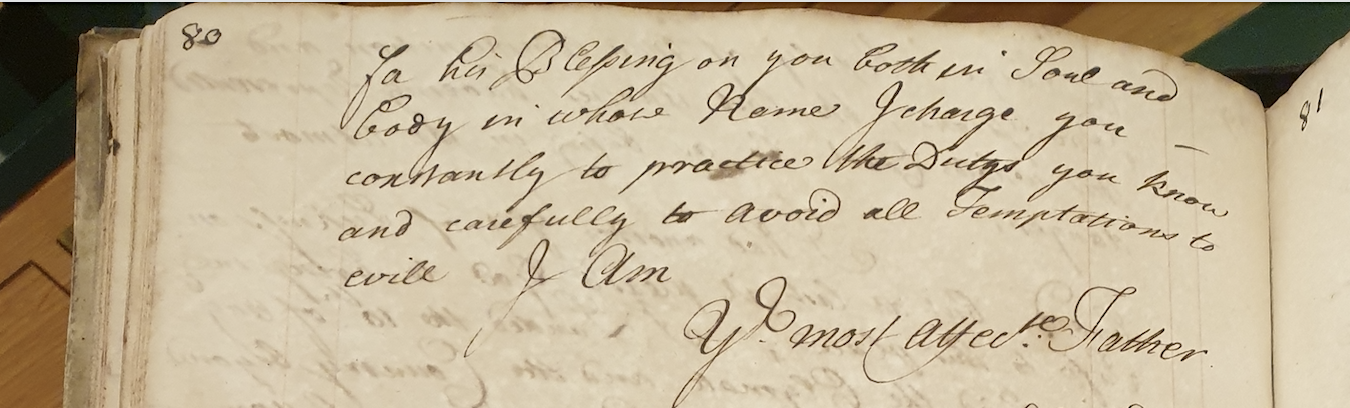 80
fa his Blessing on you both in Soul and
Body in whose Name I charge you
constantly to practice the Dutys you know
and carefully to avoid all Temptations to
evill I Am
Yr. most affecte. Father
81